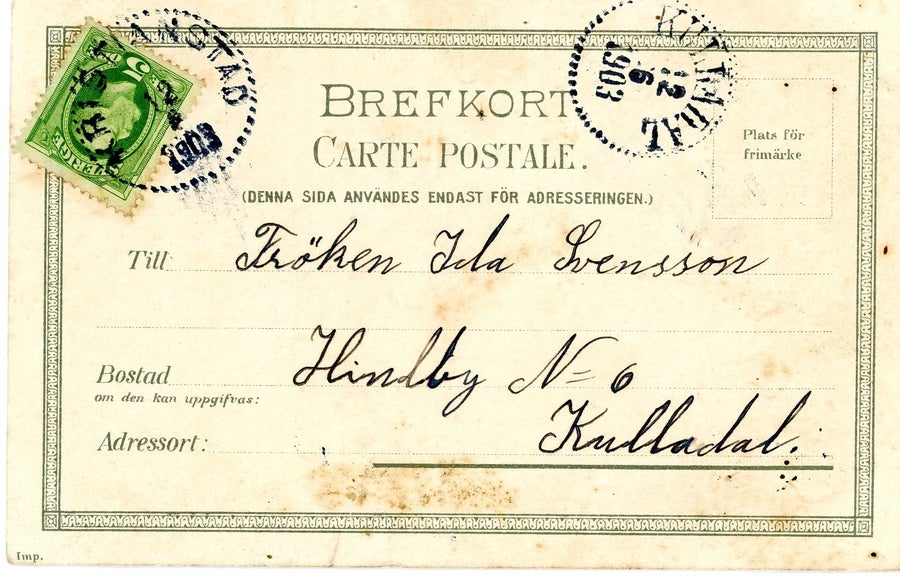 KRISTIANSTAD
1903
KULLADAL
12
6
1903
5
BREFKORT
CARTE POSTALE.
Plats för
frimärke
(DENNA SIDA ANVÄNDES ENDAST FÖR ADRESSERINGEN.)
Till Fröken Ida Svensson
Bostad Hindby N= 6
om den kan uppgifvas:
Adressort: Kulladal.
Imp.